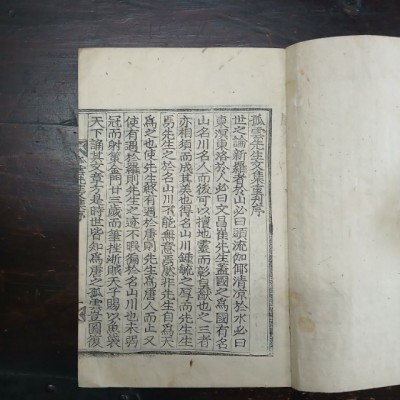 孤雲先生文集重刋序
世之論新羅者於山必曰頭流伽倻清凉於水必曰
東溟東洛於人必曰文昌崔先生蓋國之爲國有名
山名川名人而後可以擅地靈而彰台猷也之三者
亦相須而成其美也名山川鍾毓之尊而先生生
焉先生之於名山川不能無意焉歟非先生自爲天
爲之也使先生終有遇於唐則先生爲唐人而止又
使有遇於羅則先生之迹不暇徧於名山川也未弱
冠而射策金門廿三歲而筆挫浙賊天子賜以魚袋
天下誦其文章于是時世皆知爲唐之孤雲豈圖復